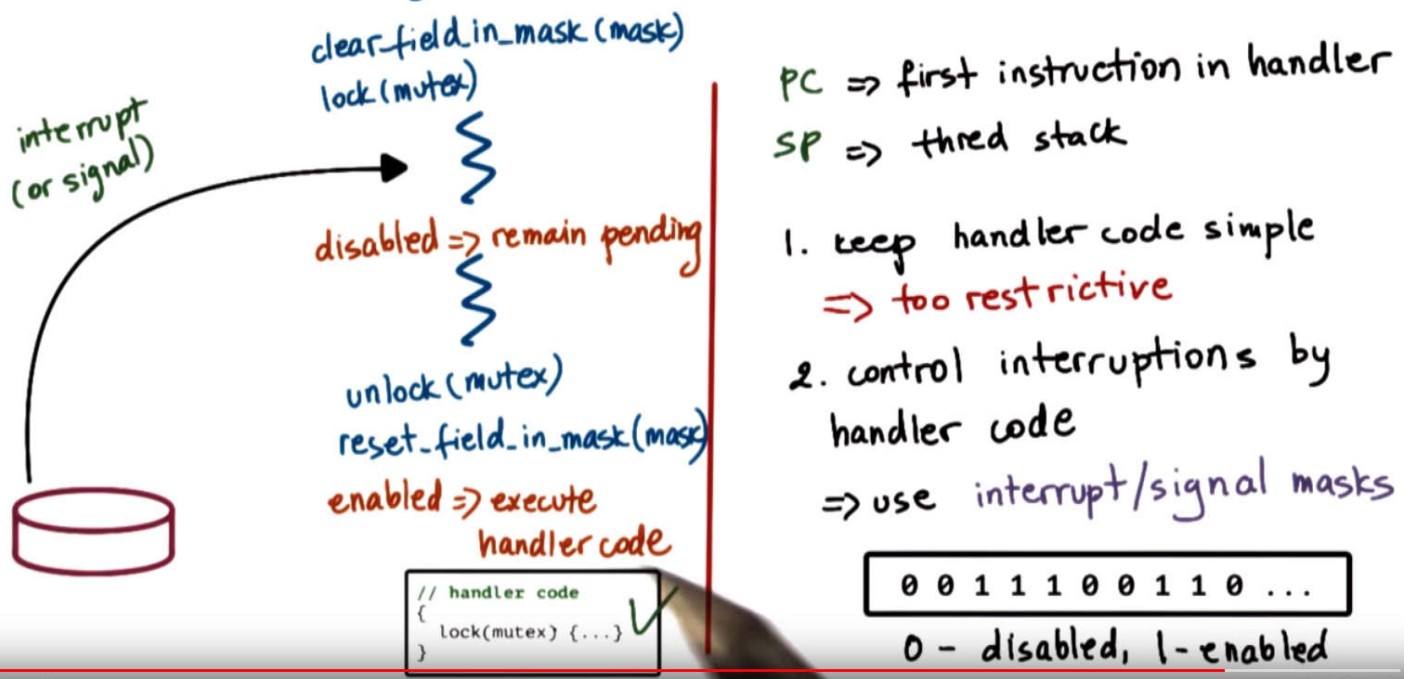 clear_field_in_mask(mask)
lock(mutex)
interrupt
(or signal)
disabled => remain pending
unlock(mutex)
reset_field_in_mask(mask)
enabled => execute
handler code
// handler code
{
lock(mutex) {...}
}
PC => first instruction in handler
SP => thred stack
1. keep handler code simple
=> too restrictive
2. control interruptions by
handler code
=> use interrupt/signal masks
0 0 1 1 1 0 0 1 1 0 ...
0 - disabled, 1-enabled